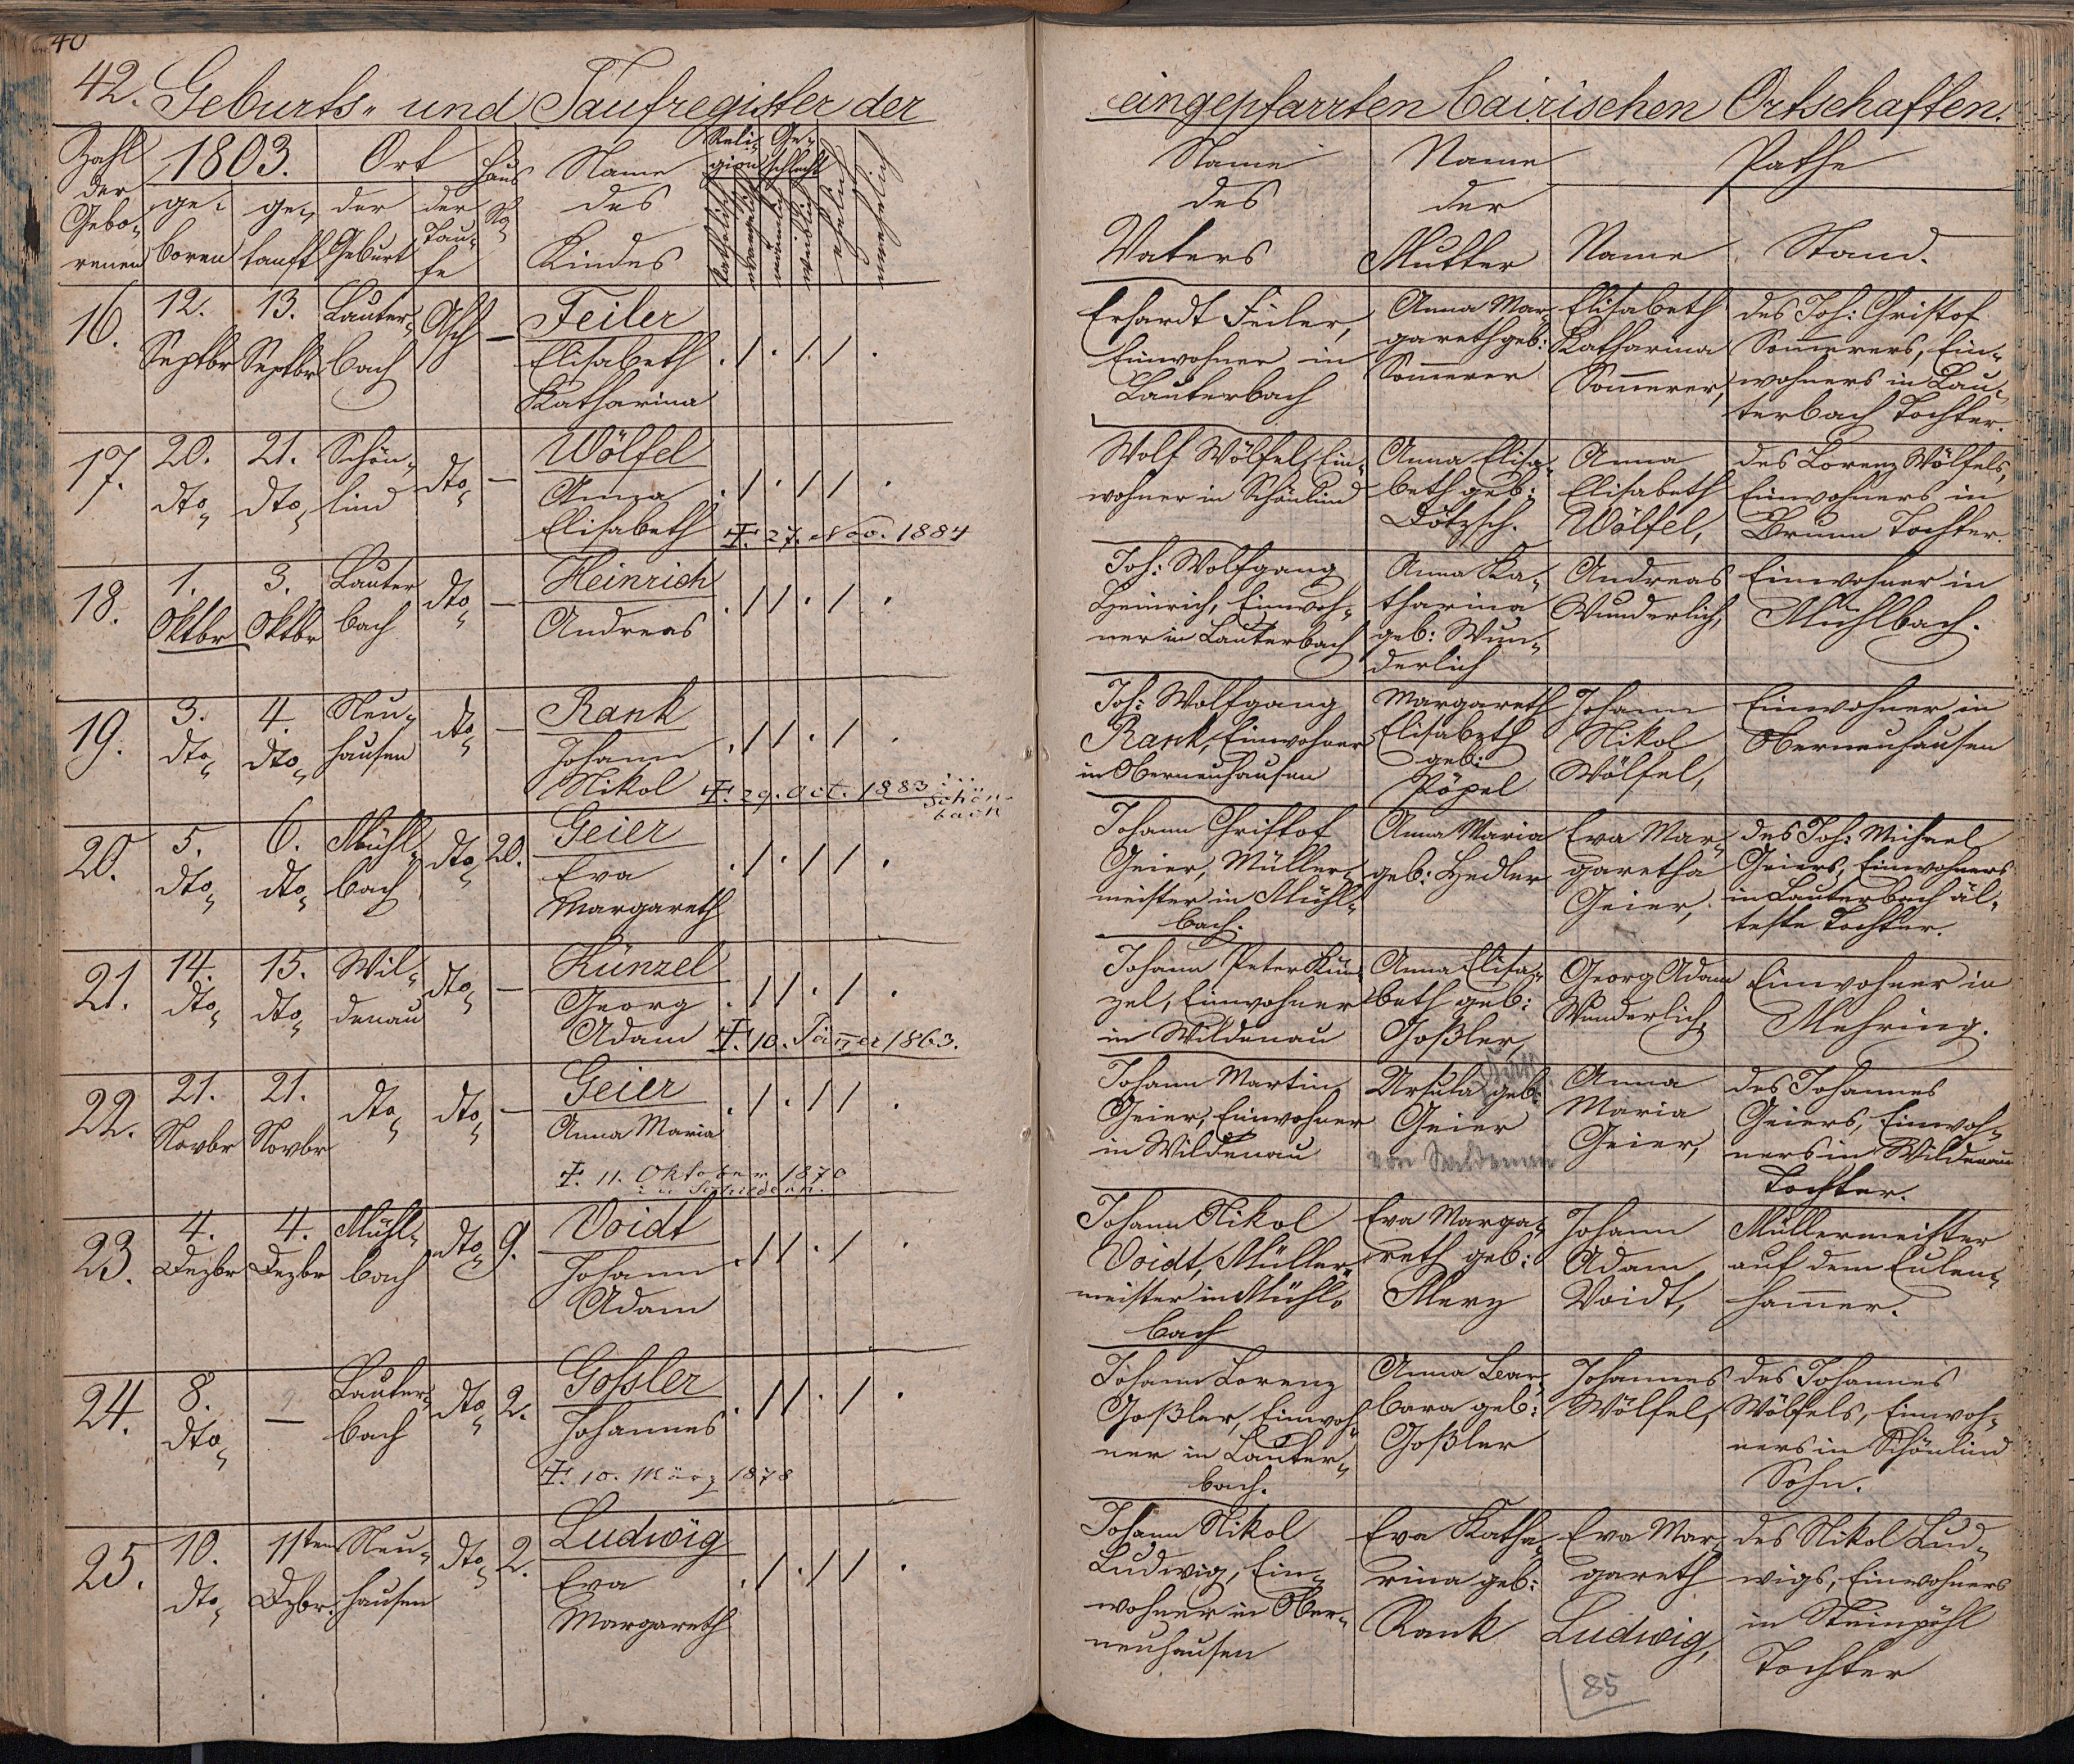 40
42. Geburts- und Taufregister der
eingepfarrten bairischen Ortschaften.
Zahl der Gebo-renen
1803.
ge-boren
ge-tauft
Ort
der Geburt
der Tau-fe
Haus No
Name des Kindes
Reli-gion
katholisch
evangelisch
Ge-schlecht
männlich
weiblich
ehelich
unehelich
Name des Vaters
Name der Mutter
Pathe
Name
Stand.
16.
12. Septbr
13. Septbr
Lauter-
bach
Asch
—
Feiler
Elisabeth
Katharina
. / . / / .
Erhardt Feiler,
Einwohner in
Lauterbach
Anna Mar-
gareth geb:
Sommerer
Elisabeth
Katharina
Sommerer,
des Joh: Christof
Sommerers, Ein-
wohners in Lau-
terbach Tochter.
17.
20. dto
21. dto
Schön-
lind
dto
—
Wölfel
Anna
Elisabeth
. / . / / .
‡. 27. Nov. 1884
Wolf Wölfel, Ein-
wohner in Schönlind
Anna Elisa-
beth geb:
Dötzsch.
Anna
Elisabeth
Wölfel,
des Lorenz Wölfels,
Einwohners in
Brunn Tochter.
18.
1. Oktbr
3. Oktbr
Lauter
bach
dto
—
Heinrich
Andreas
. / / . / .
Joh: Wolfgang
Heinrich, Einwoh-
ner in Lauterbach
Anna Ka-
tharina
geb: Wun-
derlich
Andreas
Wunderlich,
Einwohner in
Mühlbach.
19.
3. dto
4. dto
Neu-
hausen
dto
—
Rank
Johann
Nikol
. / / . / .
‡. 29. Oct. 1883
Schön-
bach
Joh: Wolfgang
Rank, Einwohner
in Oberneuhausen
Margareth
Elisabeth
geb:
Pöpel
Johann
Nikol
Wölfel,
Einwohner in
Oberneuhausen
20.
5. dto
6. dto
Mühl-
bach
dto
20.
Geier
Eva
Margareth
. / . / / .
Johann Christof
Geier, Müller-
meister in Mühl-
bach.
Anna Maria
geb: Hedler
Eva Mar-
garetha
Geier,
des Joh: Michael
Geiers, Einwohners
in Lauterbach äl-
teste Tochter.
21.
14. dto
15. dto
Wil-
denau
dto
—
Künzel
Georg
Adam
. / / . / .
‡. 10. Jänner 1863.
Johann Peter Kün-
zel, Einwohner
in Wildenau
Anna Elisa-
beth geb:
Goßler,
Georg Adam
Wunderlich,
Einwohner in
Mehring.
22.
21. Novbr
21. Novbr
dto
dto
—
Geier
Anna Maria
. / . / / .
‡. 11. Oktober 1870
in Schildern.
Johann Martin
Geier, Einwohner
in Wildenau
Ursula geb:
Geier
von Wildenau
Anna
Maria
Geier,
des Johannes
Geiers, Einwoh-
ners in Wildenau
Tochter.
23.
4. Dezbr
4. Dezbr
Mühl-
bach
dto
9.
Voidt
Johann
Adam
. / / . / .
Johann Nikol
Voidt, Müller-
meister in Mühl-
bach
Eva Marga-
reth geb:
Merz
Johann
Adam
Voidt,
Müllermeister
auf dem Eulen-
hammer.
24.
8. dto
—
Lauter-
bach
dto
2.
Gossler
Johannes
. / / . / .
‡. 10. März 1878
Johann Lorenz
Goßler, Einwoh-
ner in Lauter-
bach.
Anna Bar-
bara geb:
Goßler
Johannes
Wölfel,
des Johannes
Wölfels, Einwoh-
ners in Schönlind
Sohn.
25.
10. dto
11ten Dzbr.
Neu-
hausen
dto
2.
Ludwig
Eva
Margareth
. / . / / .
Johann Nikol
Ludwig, Ein-
wohner in Ober-
neuhausen
Eva Katha-
rina geb:
Rank
Eva Mar-
gareth
Ludwig,
des Nikol Lud-
wigs, Einwohners
in Steinpöhl
Tochter
85